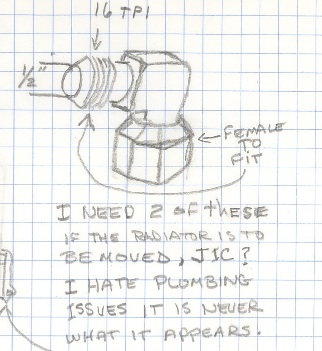 16 TPI
1/2"
FEMALE
TO
FIT
I NEED 2 of these
IF THE RADIATOR IS TO
BE MOVED, JIC?
I HATE PLUMBING
ISSUES IT IS NEVER
WHAT IT APPEARS.